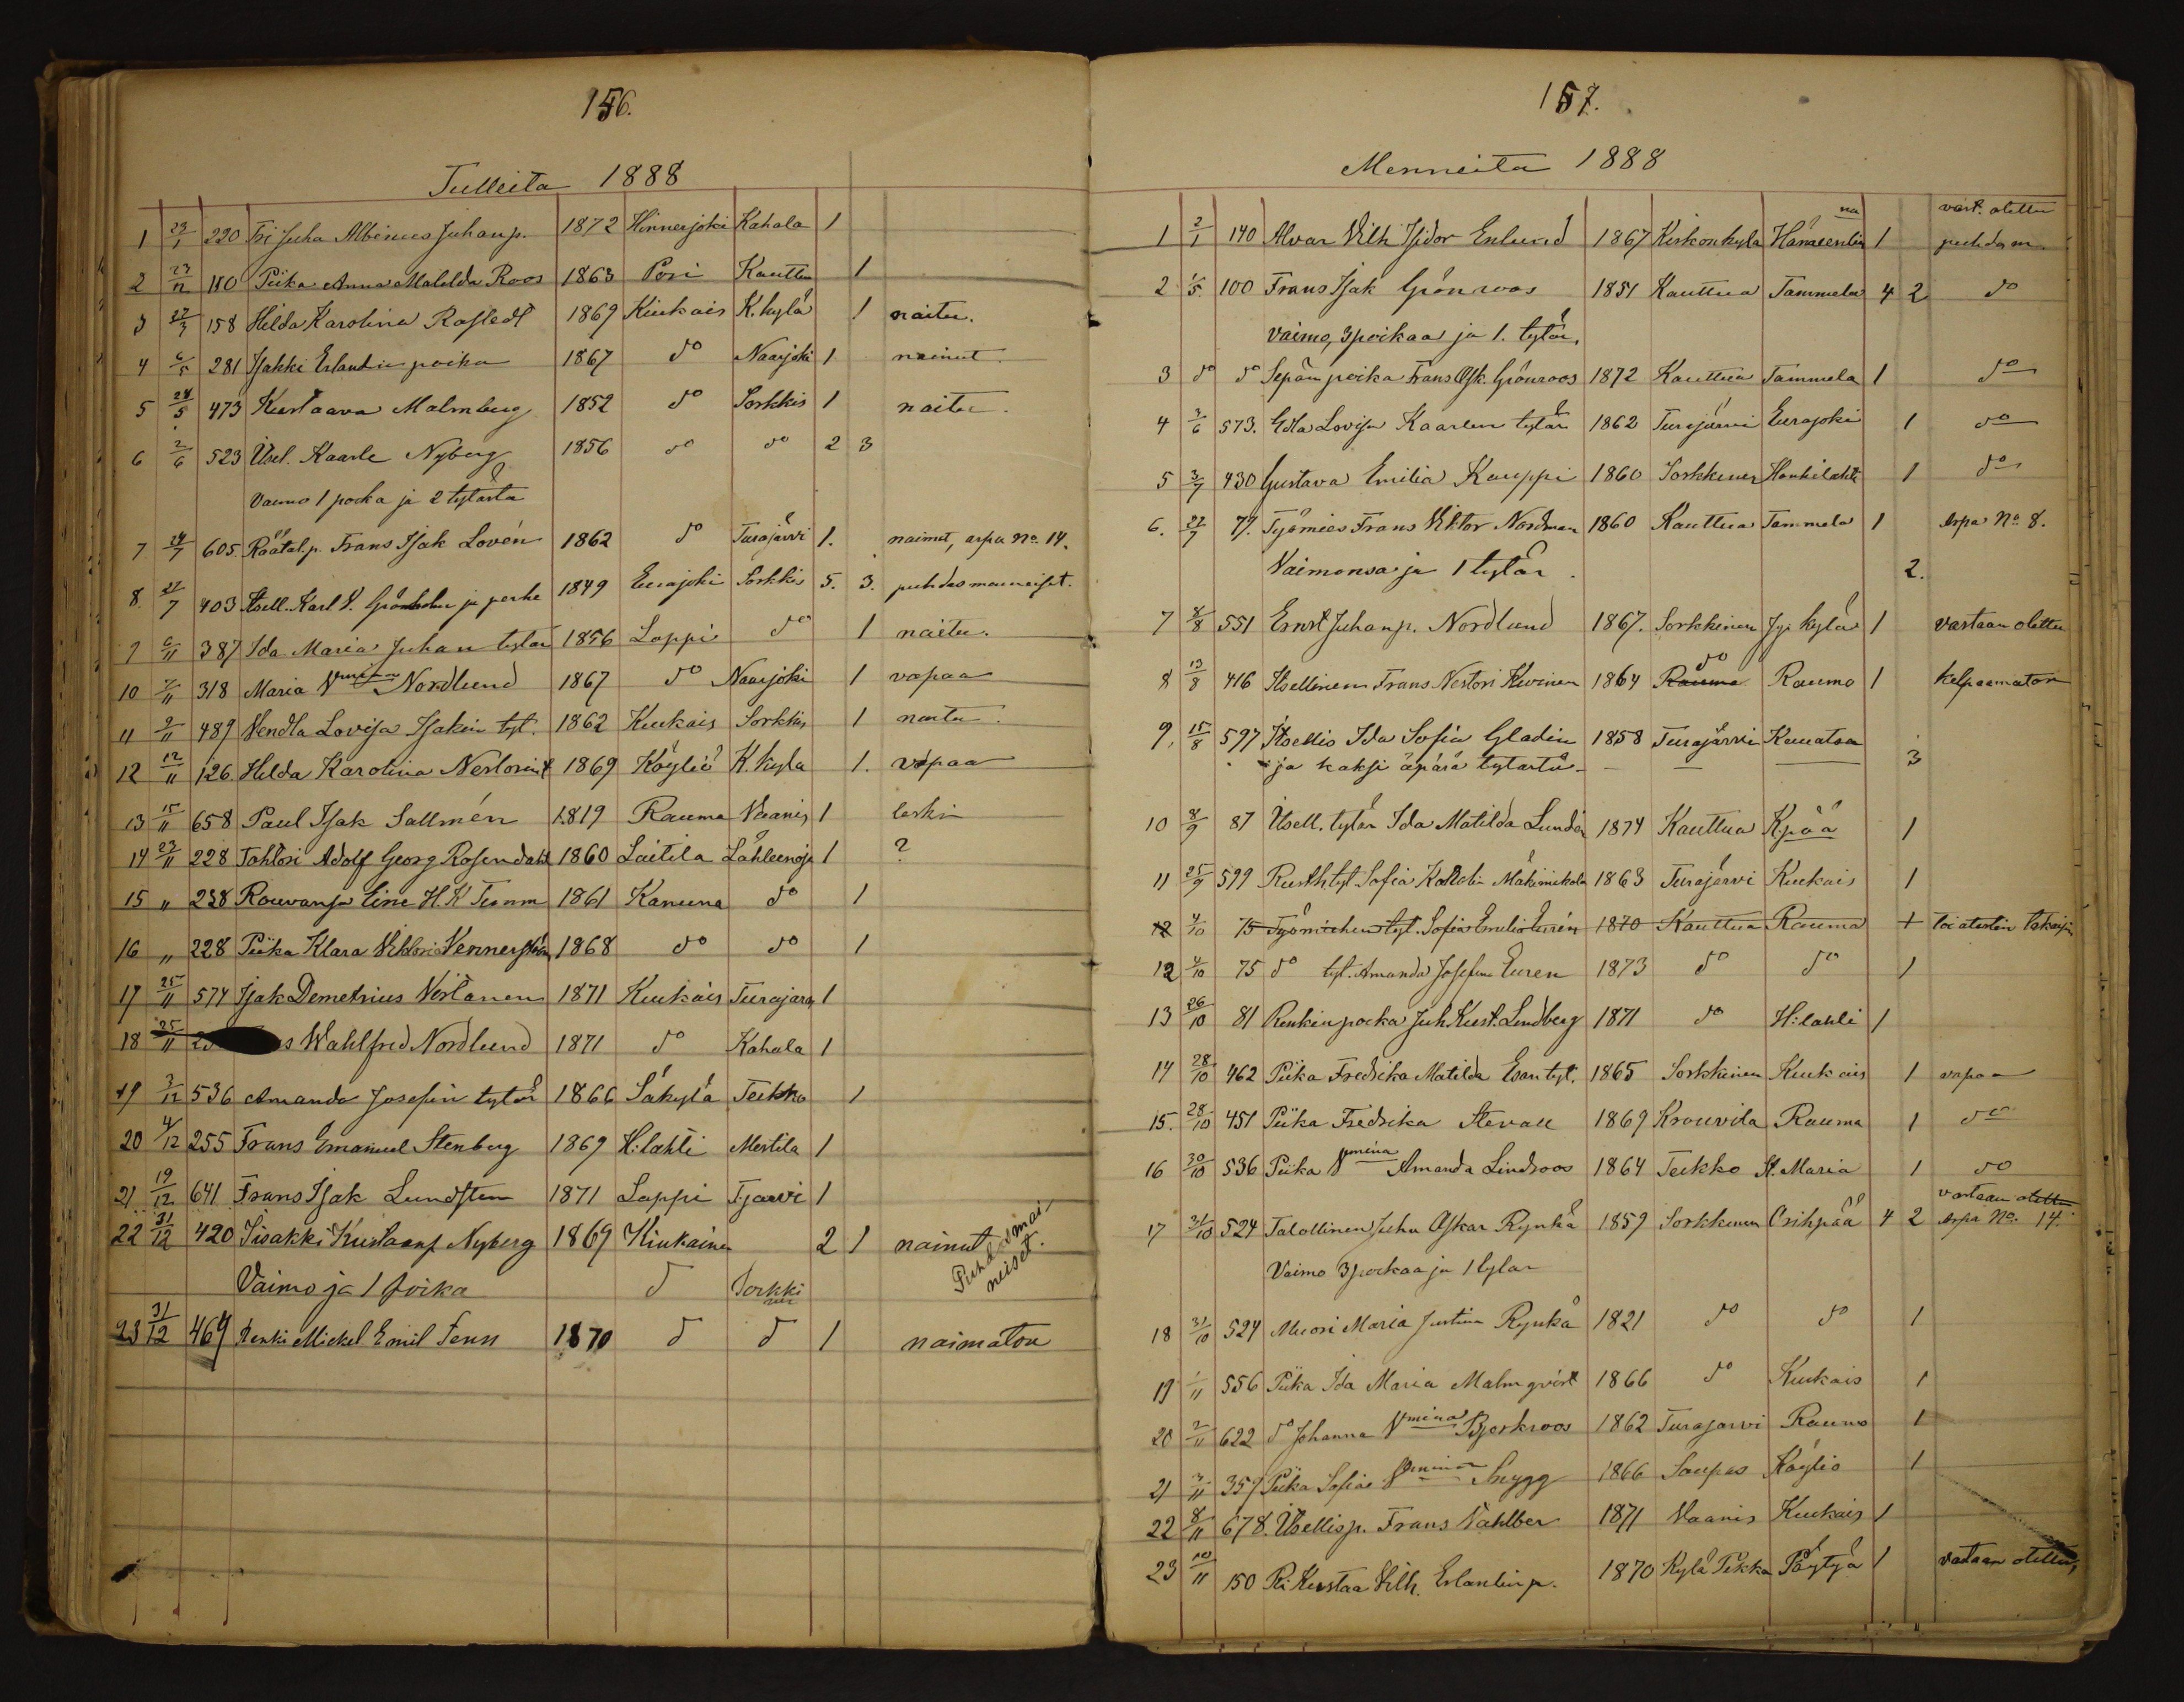 156.
Tulleita 1888
1 23/1 220 Tri Juha Albinus Juhan p. 1872 Hinnerjoki Kahala 1
2 23/12 110 Piika Anna Matilda Roos 1863 Pori Kauttua 1
3 27/3 158 Hilda Karolina Rostedt 1869 Kiukais K. kylä 1 naitu.
4 6/5 281 Isakki Erlandin poika 1867 do Naarjoki 1 nainut
5 24/5 473 Kustaava Malmberg 1852 do Sorkkis 1 naitu.
6 2/6 523 Itsel. Kaarle Nyberg 1856 do do 2 3
Vaimo 1 poika ja 2 tytärtä
7 24/7 605. Räätal.p. Frans Isak Lovén 1862 do Turajärvi 1. nainut, arpa No. 14.
8. 27/7 403 Itsell. Karl V. Grönholm ja perhe 1849 Eurajoki Sorkkis 5. 3. puhdasmaineiset.
9 6/11 387 Ida Maria Juhan tytär 1856 Lappi do 1 naitu.
10 7/11 318 Maria Vmina Nordlund 1867 do Naarjoki 1 vapaa
11 9/11 489 Vendla Lovisa Isakin tyt. 1862 Kiukais Sorkkis 1 naitu.
12 12/11 126. Hilda Karolina Nestorint 1869 Köyliö K. kyla 1. vapaa
13 15/11 658 Paul Isak Sallmén 1819 Rauma Vaanis 1 leski
14 23/11 228 Tohtori Adolf Georg Rosendahl 1860 Laitila Lähteenoja 1 ?
15 " 228 Rouvansa Eine H. K. Tramm 1861 Kanuna do 1
16 " 228 Piika Klara Viktoria Vennerström 1868 do do 1
17 25/11 574 Isak Demetrius Vistanen 1871 Kiukais Turajarvi 1
18 25/11 Wahlfred Nordlund 1871 do Kahala 1
19 3/12 536 Amanda Josefin tytär 1866 Säkylä Teikko 1
20 4/12 255 Frans Emanuel Stenberg 1869 H:lahti Mestila 1
21 19/12 641 Frans Isak Lundsten 1871 Lappi T.jarvi 1
22 31/12 420 Iisakki Kustaanp Nyberg 1869 Kiukainen 2 1 nainut
Puhdasmai-
neiset.
Vaimo ja 1 poika do Sorkki
nen
23 31/12 469 Renki Mickel Emil Fenn 1870 do do 1 naimaton
157.
Menneita 1888
1 2/1 140 Alvar Vilh Isidor Enlund 1867 Kirkonkyla Hämeenlin
na 1 vast. otettu
puhdasm.
2 1/5. 100 Frans Isak Grönroos 1851 Kauttua Tammela 4 2 do
Vaimo, 3 poikaa ja 1. tytär.
3 do do Sepän poika Frans Osk. Grönroos 1872 Kauttua Tammela 1 do
4 3/6 573. Edla Lovisa Kaarlen tytär 1862 Turajärvi Eurajoki 1 do
5 3/7 430 Gustava Emilia Kauppi 1860 Sorkkinen Honkilahti 1 do
6. 27/7 77. Työmies Frans Viktor Nordman 1860 Kauttua Tammela 1 Arpa No. 8.
Vaimonsa ja 1 tytär. 2.
7 8/8 551 Ernst Juhanp. Nordlund 1867. Sorkkinen Jy. kylä 1 Vastaan otettu
8 13/8 416 Itsellinen Frans Nestori Kivinen 1864 do Rauma Rauma 1 kelpaamaton
9. 15/8 597 Itsellis Ida Sofia Gladin 1858 Turajärvi Kauatsa
ja kaksi äpärä tytärtä 3
10 8/9 87 Itsell. tytär Ida Matilda Lunden 1874 Kauttua K.pää 1
11 25/9 599 Rusth tyt Sofia Mäkimikola 1863 Turajärvi Kiukais 1
12 4/10 75 Työmiehen tyt. Sofia Emilia Eurén 1870 Kauttua Rauma 1 toi atestin takaisin
12 4/10 75 do tyt. Amanda Josefina Euren 1873 do do 1
13 26/10 81 Renkin poika Juh. Kust. Lindberg 1871 do H:lahti 1
14 28/10 462 Piika Fredrika Matilda Esan tyt. 1865 Sorkkinen Kiukais 1 vapaa
15. 28/10 451 Piika Fredrika Stevall 1869 Krouvila Rauma 1 do
16 30/10 536 Piika Vmina Amanda Lindroos 1864 Teikko St. Maria 1 do
17 31/10 524 Talollinen Juha Oskar Rynkä 1859 Sorkkinen Oripää 4 2 vastaan otettu
Arpa No. 14.
Vaimo 3 poikaa ja 1 tytar
18 31/10 524 Muori Maria Justina Rynkä 1821 do do 1
19 1/11 556 Piika Ida Maria Malmqvist 1866 do Kiukais 1
20 2/11 622 do Johanna Vmina Bjorkroos 1862 Turajarvi Rauma 1
21 3/11 359 Piika Sofia Vmina Snygg 1866 Saupas Köyliö 1
22 8/11 678. Itsellisp. Frans Vahlber 1871 Vaanis Kiukais 1
23 10/11 150 Ri Kustaa Vilh. Erlantinp. 1870 Kylä Pekka Pöytyä 1 Vastaan otettu,